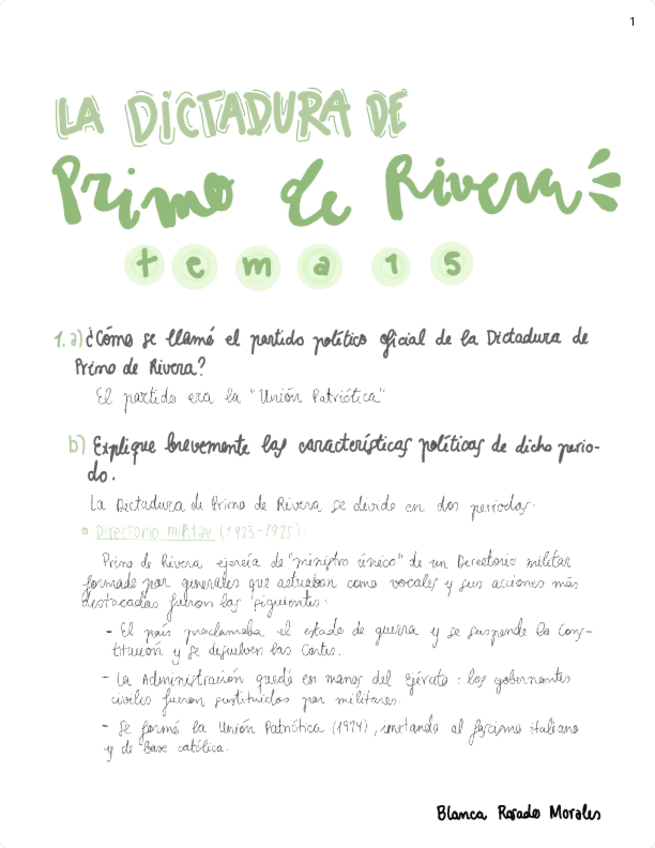 1
LA DICTADURA DE
Primo de Rivera
tema 15
1. a) ¿Cómo se llamó el partido político oficial de la Dictadura de
Primo de Rivera?
El partido era la "Unión Patriótica"
b) Explique brevemente las características políticas de dicho perio-
do.
La Dictadura de Primo de Rivera se divide en dos periodos.
Directorio militar (1923-1925):
Primo de Rivera ejercía de "ministro único" de un Directorio militar
formado por generales que actuaban como vocales y sus acciones más
destacadas fueron las siguientes:
- El país proclamaba el estado de guerra y se suspende la Cons-
titución y se disuelven las Cortes.
- La Administración quedó en manos del ejército: los gobernantes
civiles fueron sustituidos por militares.
- Se formó la Unión Patriótica (1924), imitando al fascismo italiano
y de base católica.
Blanca Rosado Morales